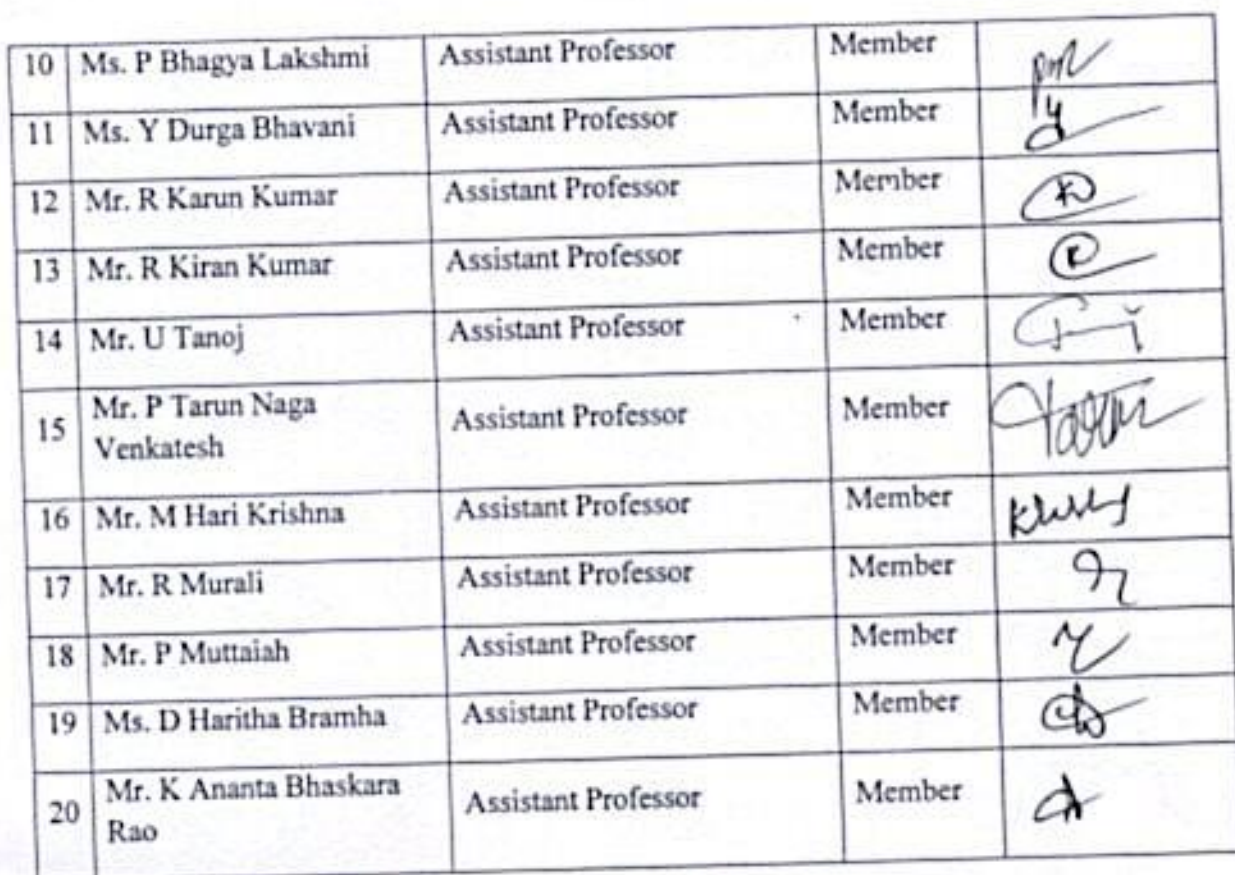 10 Ms. P Bhagya Lakshmi Assistant Professor Member
11 Ms. Y Durga Bhavani Assistant Professor Member
12 Mr. R Karun Kumar Assistant Professor Member
13 Mr. R Kiran Kumar Assistant Professor Member
14 Mr. U Tanoj Assistant Professor Member
15 Mr. P Tarun Naga
Venkatesh Assistant Professor Member
16 Mr. M Hari Krishna Assistant Professor Member
17 Mr. R Murali Assistant Professor Member
18 Mr. P Muttaiah Assistant Professor Member
19 Ms. D Haritha Bramha Assistant Professor Member
20 Mr. K Ananta Bhaskara
Rao Assistant Professor Member